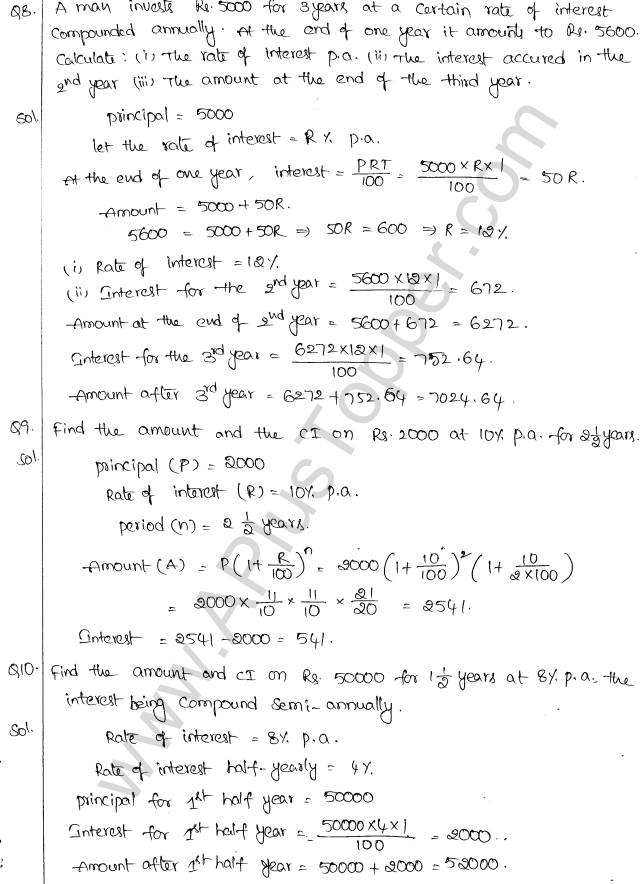 Q8. A man invests Rs. 5000 for 3 years at a certain rate of interest
compounded annually. At the end of one year it amounts to Rs. 5600.
Calculate : (i) The rate of interest p.a. (ii) The interest accured in the
2nd year (iii) The amount at the end of the third year.
Sol. principal = 5000
let the rate of interest = R % p.a.
At the end of one year, interest = PRT/100 = 5000 × R × 1/100 = 50R.
Amount = 5000 + 50R.
5600 = 5000 + 50R ⇒ 50R = 600 ⇒ R = 12%.
(i) Rate of interest = 12%.
(ii) Interest for the 2nd year = 5600 × 12 × 1/100 = 672.
Amount at the end of 2nd year = 5600 + 672 = 6272.
Interest for the 3rd year = 6272 × 12 × 1/100 = 752.64.
Amount after 3rd year = 6272 + 752.64 = 7024.64.
Q9. Find the amount and the CI on Rs. 2000 at 10% p.a. for 2 1/2 years.
Sol. principal (P) = 2000
Rate of interest (R) = 10% p.a.
period (n) = 2 1/2 years.
Amount (A) = P(1 + R/100)^n = 2000 (1 + 10/100)^2 (1 + 10/2×100)
= 2000 × 11/10 × 11/10 × 21/20 = 2541.
Interest = 2541 - 2000 = 541.
Q10. Find the amount and CI on Rs. 50000 for 1 1/2 years at 8% p.a. the
interest being compound semi-annually.
Sol. Rate of interest = 8% p.a.
Rate of interest half-yearly = 4%
principal for 1st half year = 50000
Interest for 1st half year = 50000 × 4 × 1/100 = 2000.
Amount after 1st half year = 50000 + 2000 = 52000.
www.APlusTopper.com